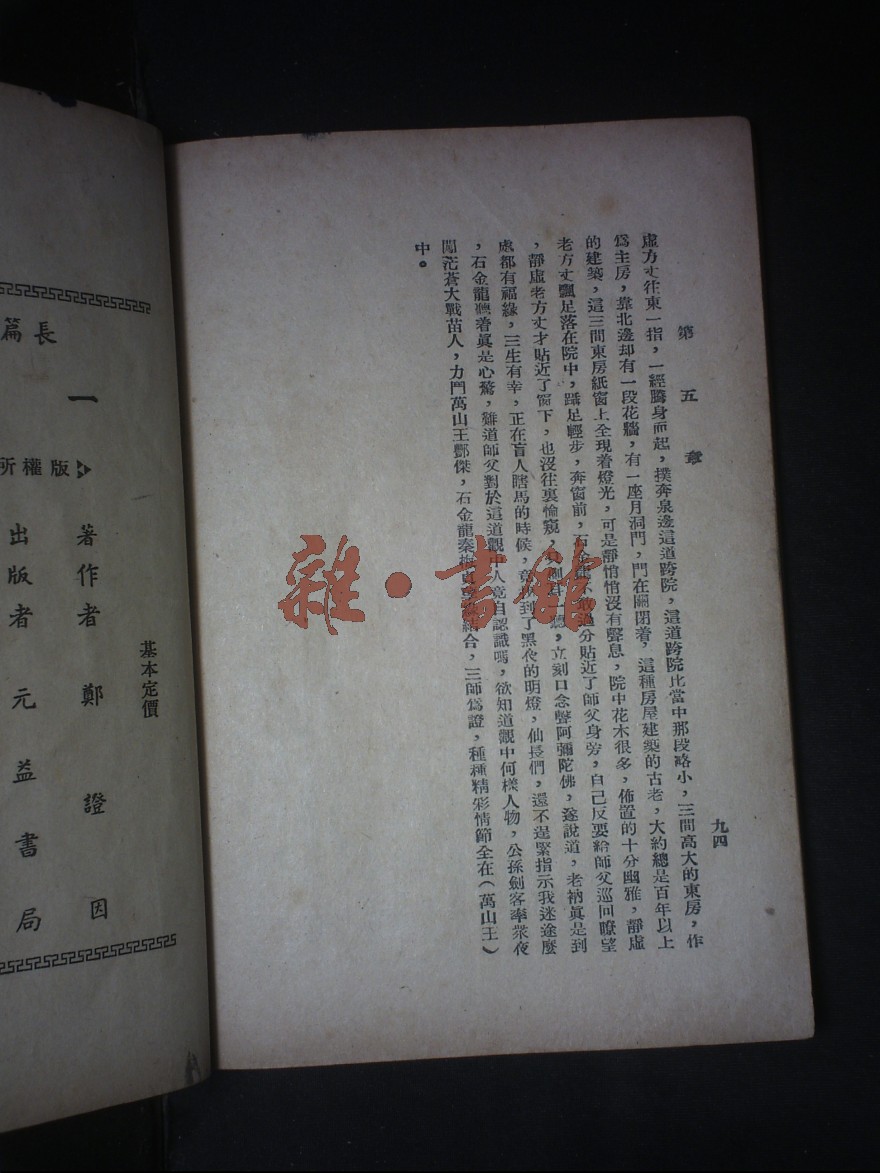 第五章
九四
虛方丈往東一指，一經騰身而起，撲奔泉邊這道跨院，這道跨院比當中那段略小，三間高大的東房，作
爲主房，靠北邊却有一段花牆，有一座月洞門，門在關閉着，這種房屋建築的古老，大約總是百年以上
的建築，這三間東房紙窗上全現着燈光，可是靜悄悄沒有聲息，院中花木很多，佈置的十分幽雅，靜虛
老方丈飄足落在院中，躡足輕步，奔窗前，石金龍不敢過分貼近了師父身旁，自己反要給師父巡回瞭望
，靜虛老方丈才貼近了窗下，也沒往裏偷窺，只側耳一聽，立刻口念聲阿彌陀佛，遂說道，老衲眞是到
處都有福緣，三生有幸，正在盲人瞎馬的時候，竟到了黑夜的明燈，仙長們，還不趕緊指示我迷途麼
，石金龍聽着眞是心驚，難道師父對於這道觀中人竟自認識嗎，欲知道觀中何樣人物，公孫劍客率衆夜
闖茫蒼大戰苗人，力鬥萬山王酆傑，石金龍秦結合，三師爲證，種種精彩情節全在（萬山王）
中。
長
篇
一
版權所
著作者 鄭證因
出版者 元益書局
基本定價
雜·書館